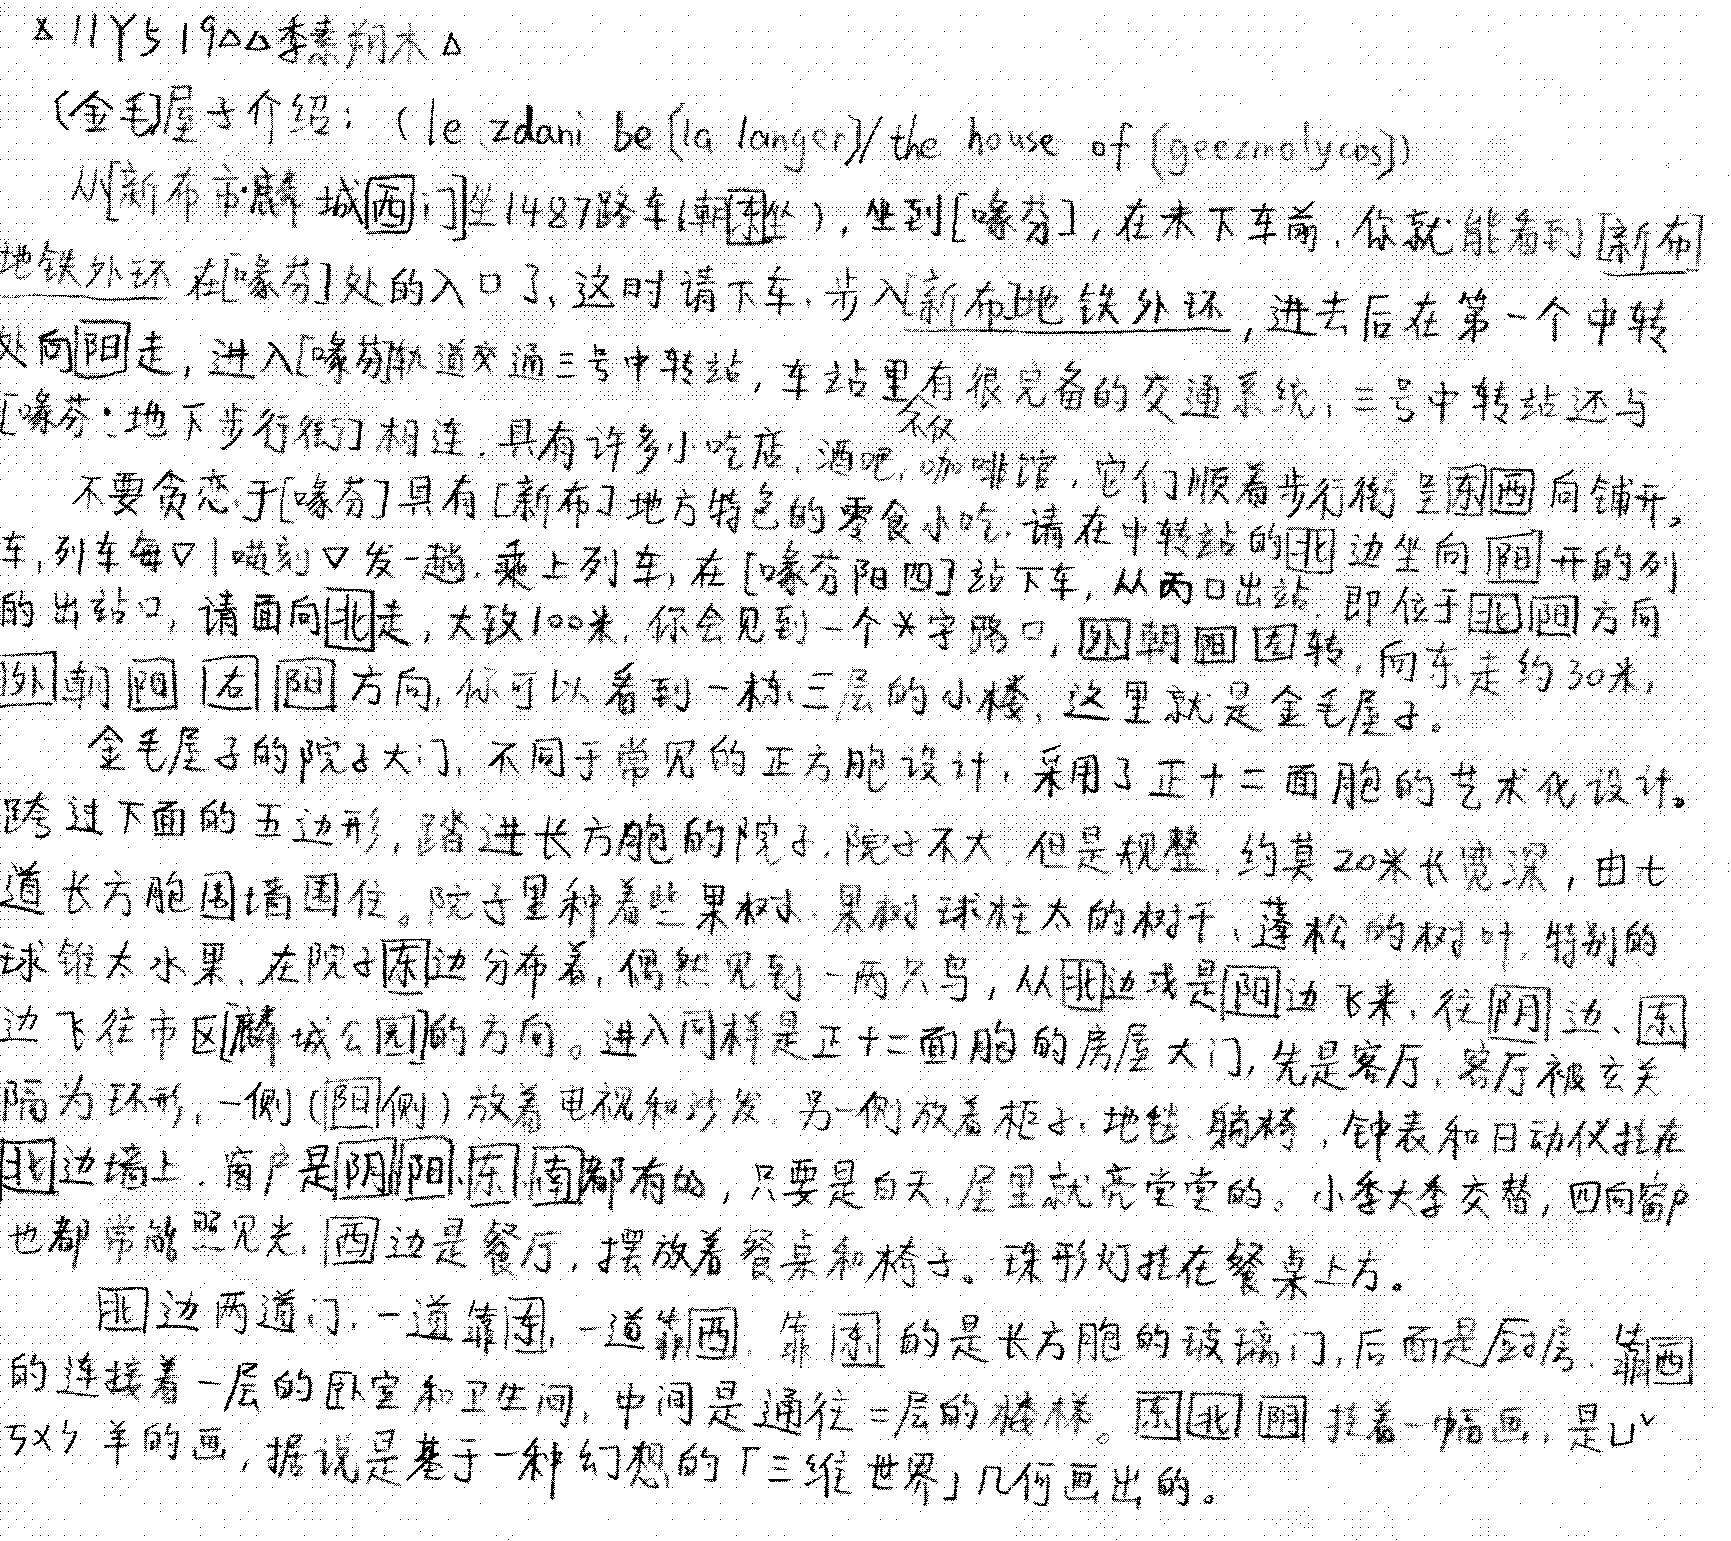 11Y519△△季素朔木△
[金毛]屋子介绍：（le zdani be [la langer]/the house of [geezmolycos]）
从[新布市·麟城西门]坐1487路车（朝东坐），坐到[喙芬]，在未下车前，你就能看到[新布]
地铁外环在[喙芬]处的入口了，这时请下车，步入[新布]地铁外环，进去后在第一个中转
处向阳走，进入[喙芬]轨道交通三号中转站，车站里有很完备的交通系统，三号中转站还与
[喙芬·地下步行街]相连，具有许多小吃店、酒吧、咖啡馆，它们顺着步行街呈东西向铺开。
不仅
不要贪恋于[喙芬]具有[新布]地方特色的零食小吃，请在中转站的北边坐向阳开的列
车，列车每▽1喷刻▽发一趟，乘上列车，在[喙芬阳四]站下车，从丙口出站，即位于北阳方向
的出站口，请面向北走，大致100米，你会见到一个米字路口，外朝转，向东走约30米，
外朝阳右阳方向，你可以看到一栋三层的小楼，这里就是金毛屋子。
金毛屋子的院子大门，不同于常见的正方胞设计，采用了正十二面胞的艺术化设计。
跨过下面的五边形，踏进长方胞的院子，院子不大，但是规整，约莫20米长宽深，由七
道长方胞围墙围住。院子里种着些果树，果树球柱太的树干，蓬松的树叶，特别的
球锥太水果，在院子东边分布着，偶然见到一两只鸟，从北边或是阳边飞来，往阴边、东
边飞往市区[麟城公园]的方向。进入同样是正十二面胞的房屋大门，先是客厅，客厅被玄关
隔为环形，一侧（阳侧）放着电视和沙发，另一侧放着柜子，地毯、躺椅，钟表和日动仪挂在
北边墙上，窗户是阴、阳、东、南都有的，只要是白天，屋里就亮堂堂的。小季大季交替，四向窗户
也都常能照见光，西边是餐厅，摆放着餐桌和椅子。球形灯挂在餐桌上方。
北边两道门，一道靠东，一道靠西，靠东的是长方胞的玻璃门，后面是厨房，靠西
的连接着一层的卧室和卫生间，中间是通往二层的楼梯。东北阴挂着一幅画，是ㄩˇ
ㄎㄨㄣ羊的画，据说是基于一种幻想的「三维世界」几何画出的。